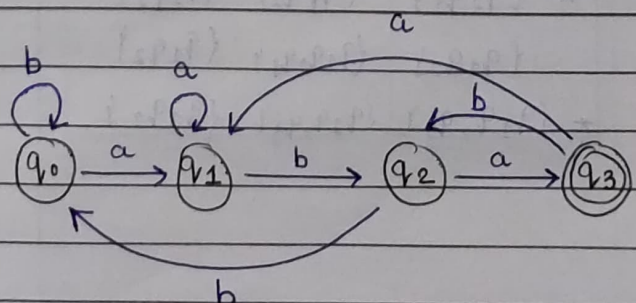 a
b a b
q0 a q1 b q2 a q3
b